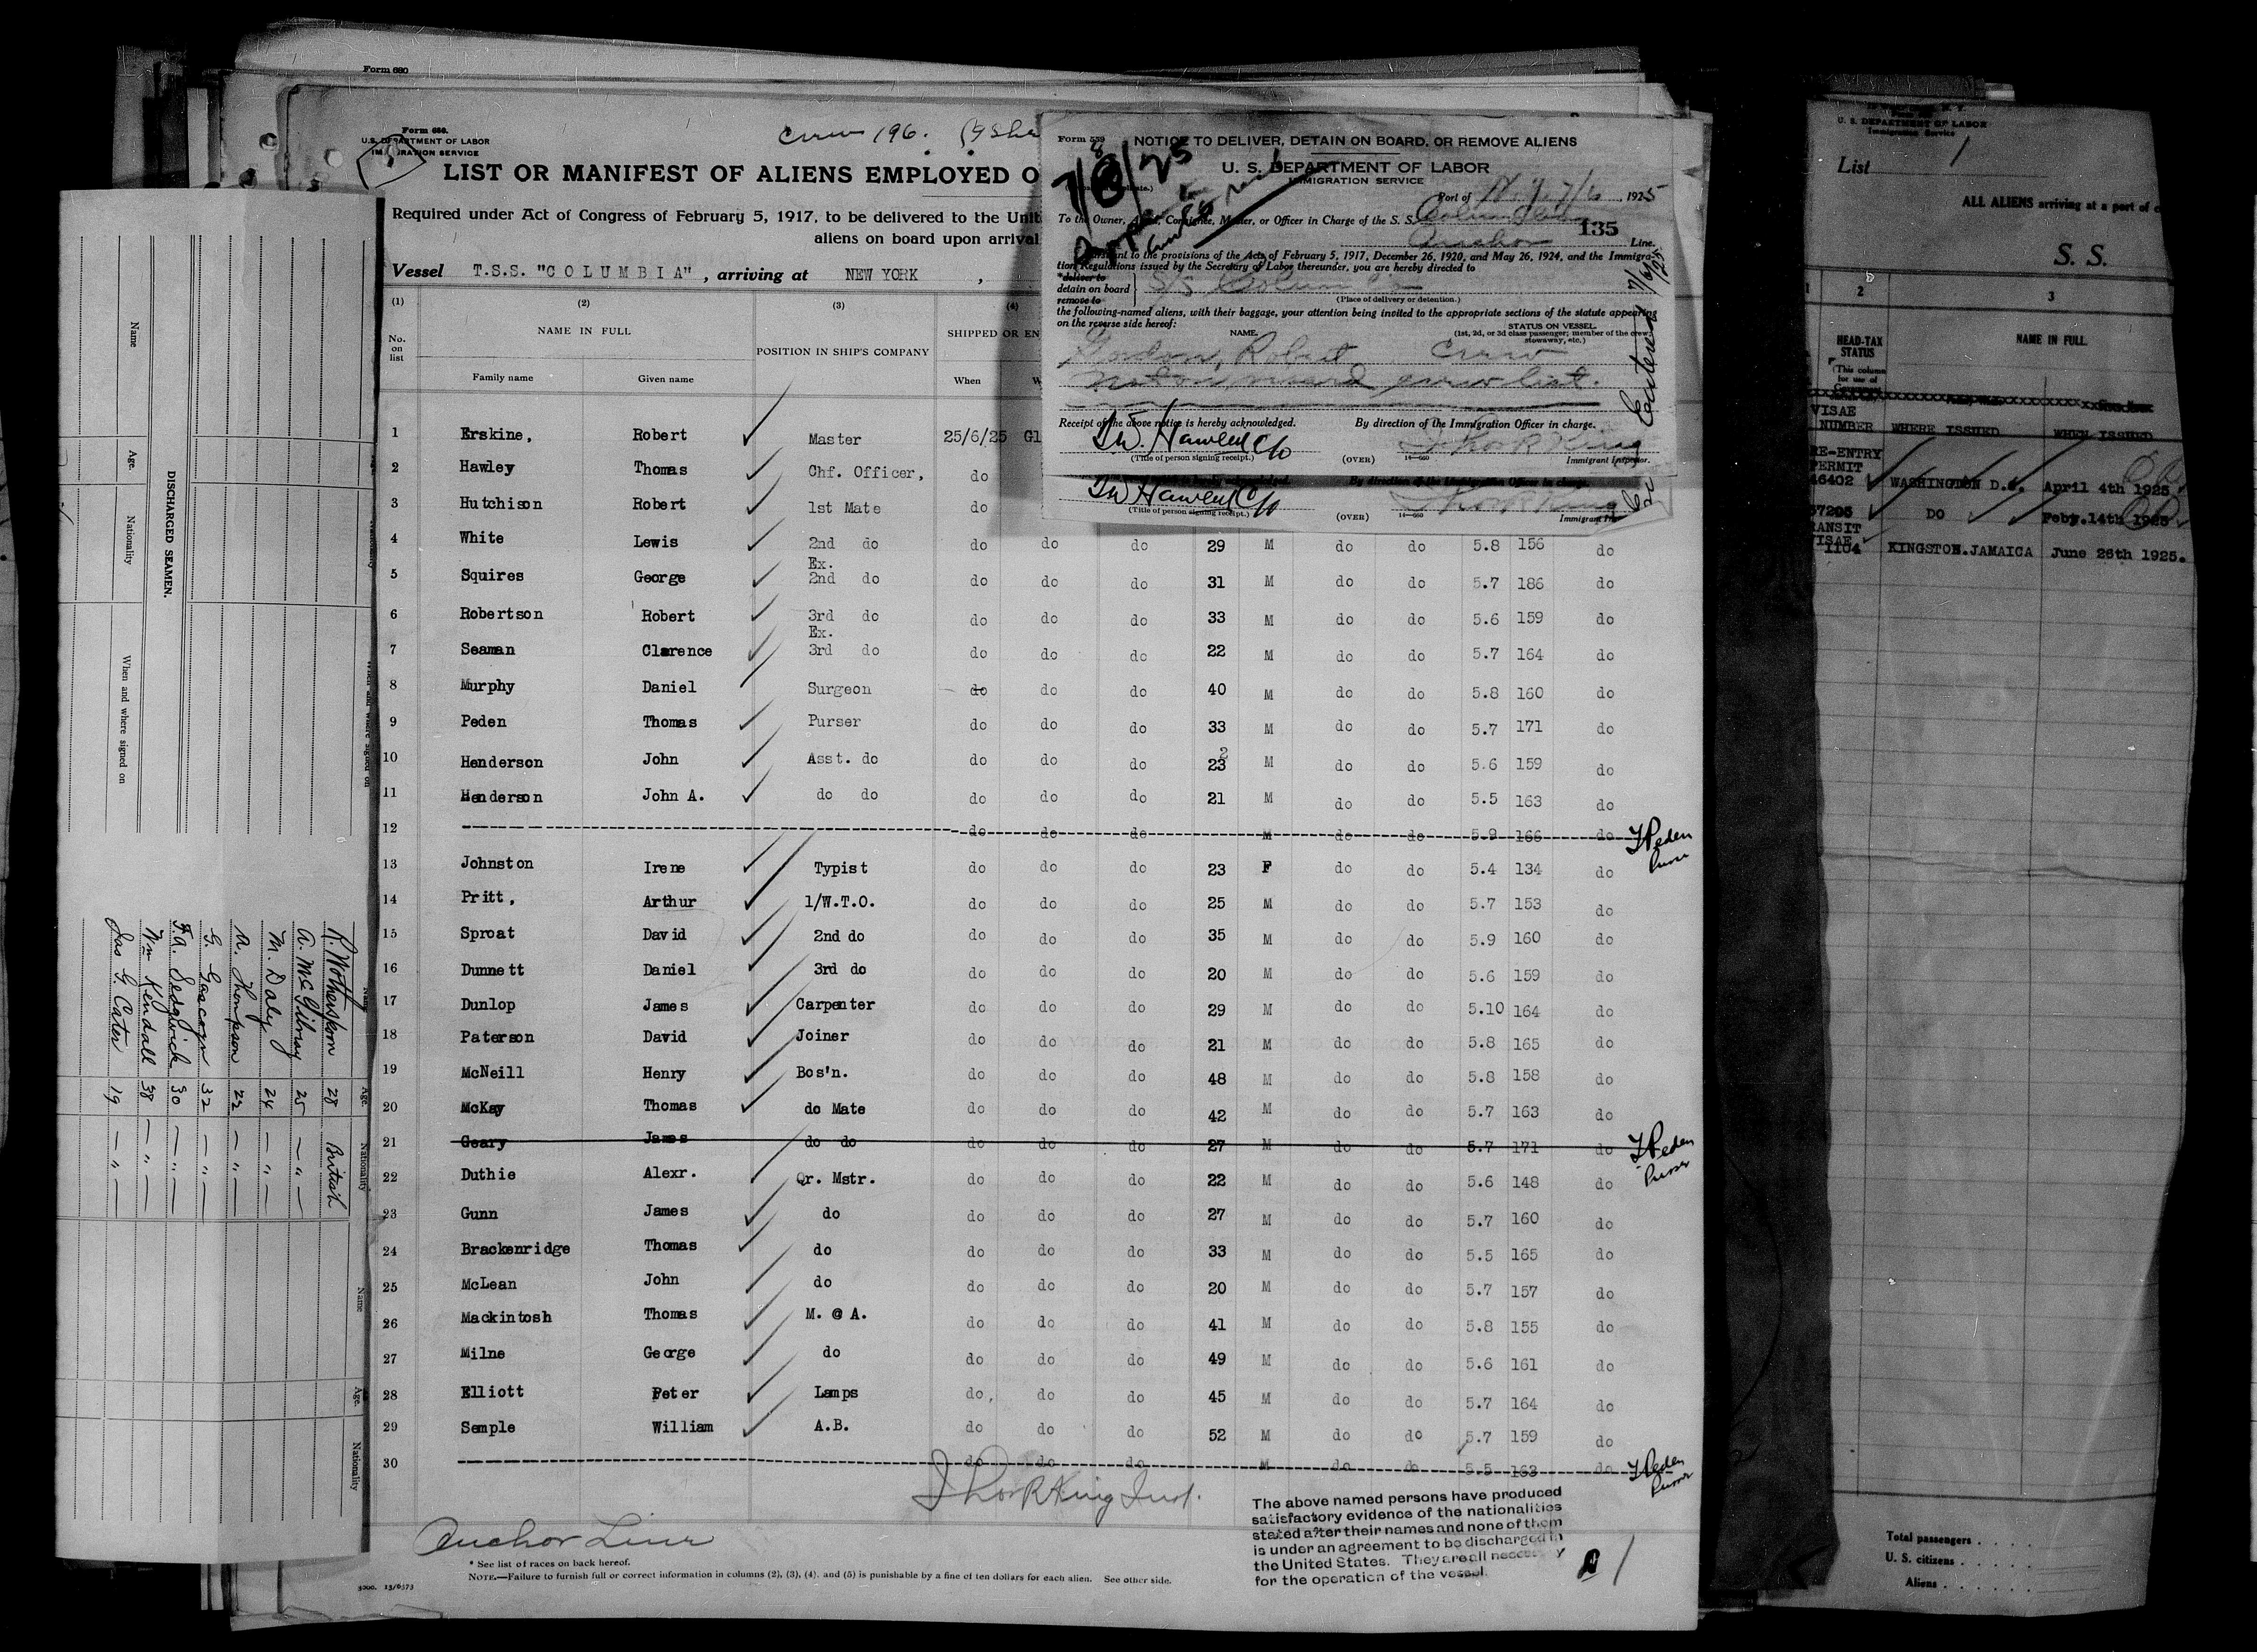 Form 680
Form 680.
U.S. DEPARTMENT OF LABOR
IMMIGRATION SERVICE
Crew 196.
LIST OR MANIFEST OF ALIENS EMPLOYED O
Required under Act of Congress of February 5, 1917, to be delivered to the Unit
aliens on board upon arrival
Vessel T.S.S. "COLUMBIA", arriving at NEW YORK ,
(1) (2) (3) (4)
No. on list
NAME IN FULL
POSITION IN SHIP'S COMPANY
SHIPPED OR EN
Family name Given name When W
1 Erskine, Robert Master 25/6/25 Gl
2 Hawley Thomas Chf. Officer, do
3 Hutchison Robert 1st Mate do
4 White Lewis 2nd do do do do 29 M do do 5.8 156 do
5 Squires George Ex. 2nd do do do do 31 M do do 5.7 186 do
6 Robertson Robert 3rd do do do do 33 M do do 5.6 159 do
7 Seaman Clarence Ex. 3rd do do do do 22 M do do 5.7 164 do
8 Murphy Daniel Surgeon do do do 40 M do do 5.8 160 do
9 Peden Thomas Purser do do do 33 M do do 5.7 171 do
10 Henderson John Asst. do do do do 23 2 M do do 5.6 159 do
11 Henderson John A. do do do do do 21 M do do 5.5 163 do
12 do do do M do do 5.9 166 do TPeden Purser
13 Johnston Irene Typist do do do 23 F do do 5.4 134 do
14 Pritt, Arthur 1/W.T.O. do do do 25 M do do 5.7 153 do
15 Sproat David 2nd do do do do 35 M do do 5.9 160 do
16 Dunnett Daniel 3rd do do do do 20 M do do 5.6 159 do
17 Dunlop James Carpenter do do do 29 M do do 5.10 164 do
18 Paterson David Joiner do do do 21 M do do 5.8 165 do
19 McNeill Henry Bos'n. do do do 48 M do do 5.8 158 do
20 McKay Thomas do Mate do do do 42 M do do 5.7 163 do
21 Geary James do do do do do 27 M do do 5.7 171 do TPeden Purser
22 Duthie Alexr. Qr. Mstr. do do do 22 M do do 5.6 148 do
23 Gunn James do do do do 27 M do do 5.7 160 do
24 Brackenridge Thomas do do do do 33 M do do 5.5 165 do
25 McLean John do do do do 20 M do do 5.7 157 do
26 Mackintosh Thomas M. @ A. do do do 41 M do do 5.8 155 do
27 Milne George do do do do 49 M do do 5.6 161 do
28 Elliott Peter Lamps do, do do 45 M do do 5.7 164 do
29 Semple William A.B. do do do 52 M do do 5.7 159 do
30 do do do M do do 5.5 163 do TPeden Purser
ThorRKing Insp.
The above named persons have produced
satisfactory evidence of the nationalities
stated after their names and none of them
is under an agreement to be discharged in
the United States. They are all necessary
for the operation of the vessel.
Anchor Line
* See list of races on back hereof.
NOTE.—Failure to furnish full or correct information in columns (2), (3), (4), and (5) is punishable by a fine of ten dollars for each alien. See other side.
Form 559
NOTICE TO DELIVER, DETAIN ON BOARD, OR REMOVE ALIENS
U. S. DEPARTMENT OF LABOR
IMMIGRATION SERVICE
7/8/25
Port of N.Y. 7/6, 1925
To the Owner, Agent, Consignee, Master, or Officer in Charge of the S. S. Columbia
135
Anchor Line.
Pursuant to the provisions of the Acts of February 5, 1917, December 26, 1920, and May 26, 1924, and the Immigra-
tion Regulations issued by the Secretary of Labor thereunder, you are hereby directed to
*deliver to
detain on board
remove to
S/S Columbia
(Place of delivery or detention.)
the following-named aliens, with their baggage, your attention being invited to the appropriate sections of the statute appearing
on the reverse side hereof:
NAME. STATUS ON VESSEL.
(1st, 2d, or 3d class passenger; member of the crew; stowaway, etc.)
Gordon, Robert Crew
Not on inward crew list.
Receipt of the above notice is hereby acknowledged. By direction of the Immigration Officer in charge.
T.W. Hawley C/O ThorRKing
(Title of person signing receipt.) (OVER) 14—660 Immigrant Inspector.
T.W. Hawley C/O ThorRKing
(Title of person signing receipt.) (OVER) 14—660
DISCHARGED SEAMEN.
Name Age. Nationality When and where signed on
Name Age. Nationality
R. Wotherspoon 28 British
A. McGilvray 25 — " —
M. Daly 24 — " —
A. Thompson 22 — " —
G. Gascoyn 32 — " —
F.A. Sedgwick 30 — " —
Wm Kendall 38 — " —
Jas G. Cater 19 — " —
Name Age. Nationality
U. S. DEPARTMENT OF LABOR
Immigration Service
List 1
ALL ALIENS arriving at a port of
S. S.
2 3
HEAD-TAX STATUS
(This column for use of Government
NAME IN FULL
VISAE NUMBER WHERE ISSUED WHEN ISSUED
RE-ENTRY
PERMIT
46402 WASHINGTON D.C. April 4th 1925.
57295 DO Feby.14th 1925
TRANSIT
VISAE
1104 KINGSTON.JAMAICA June 26th 1925.
Total passengers . . . .
U. S. citizens . . . . .
Aliens . . . . . .